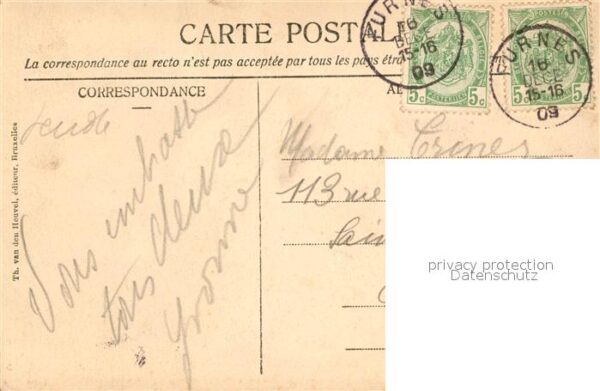 CARTE POSTAL
La correspondance au recto n'est pas acceptée par tous les pays étra
CORRESPONDANCE
FURNES
16
DECE
15-16
09
FURNES
16
DECE
15-16
09
5c 5c
5c
Th. van den Heuvel, éditeur, Bruxelles
Vous embrasse
tous deux
Yvonne
Madame
113 rue
Sain
privacy protection
Datenschutz